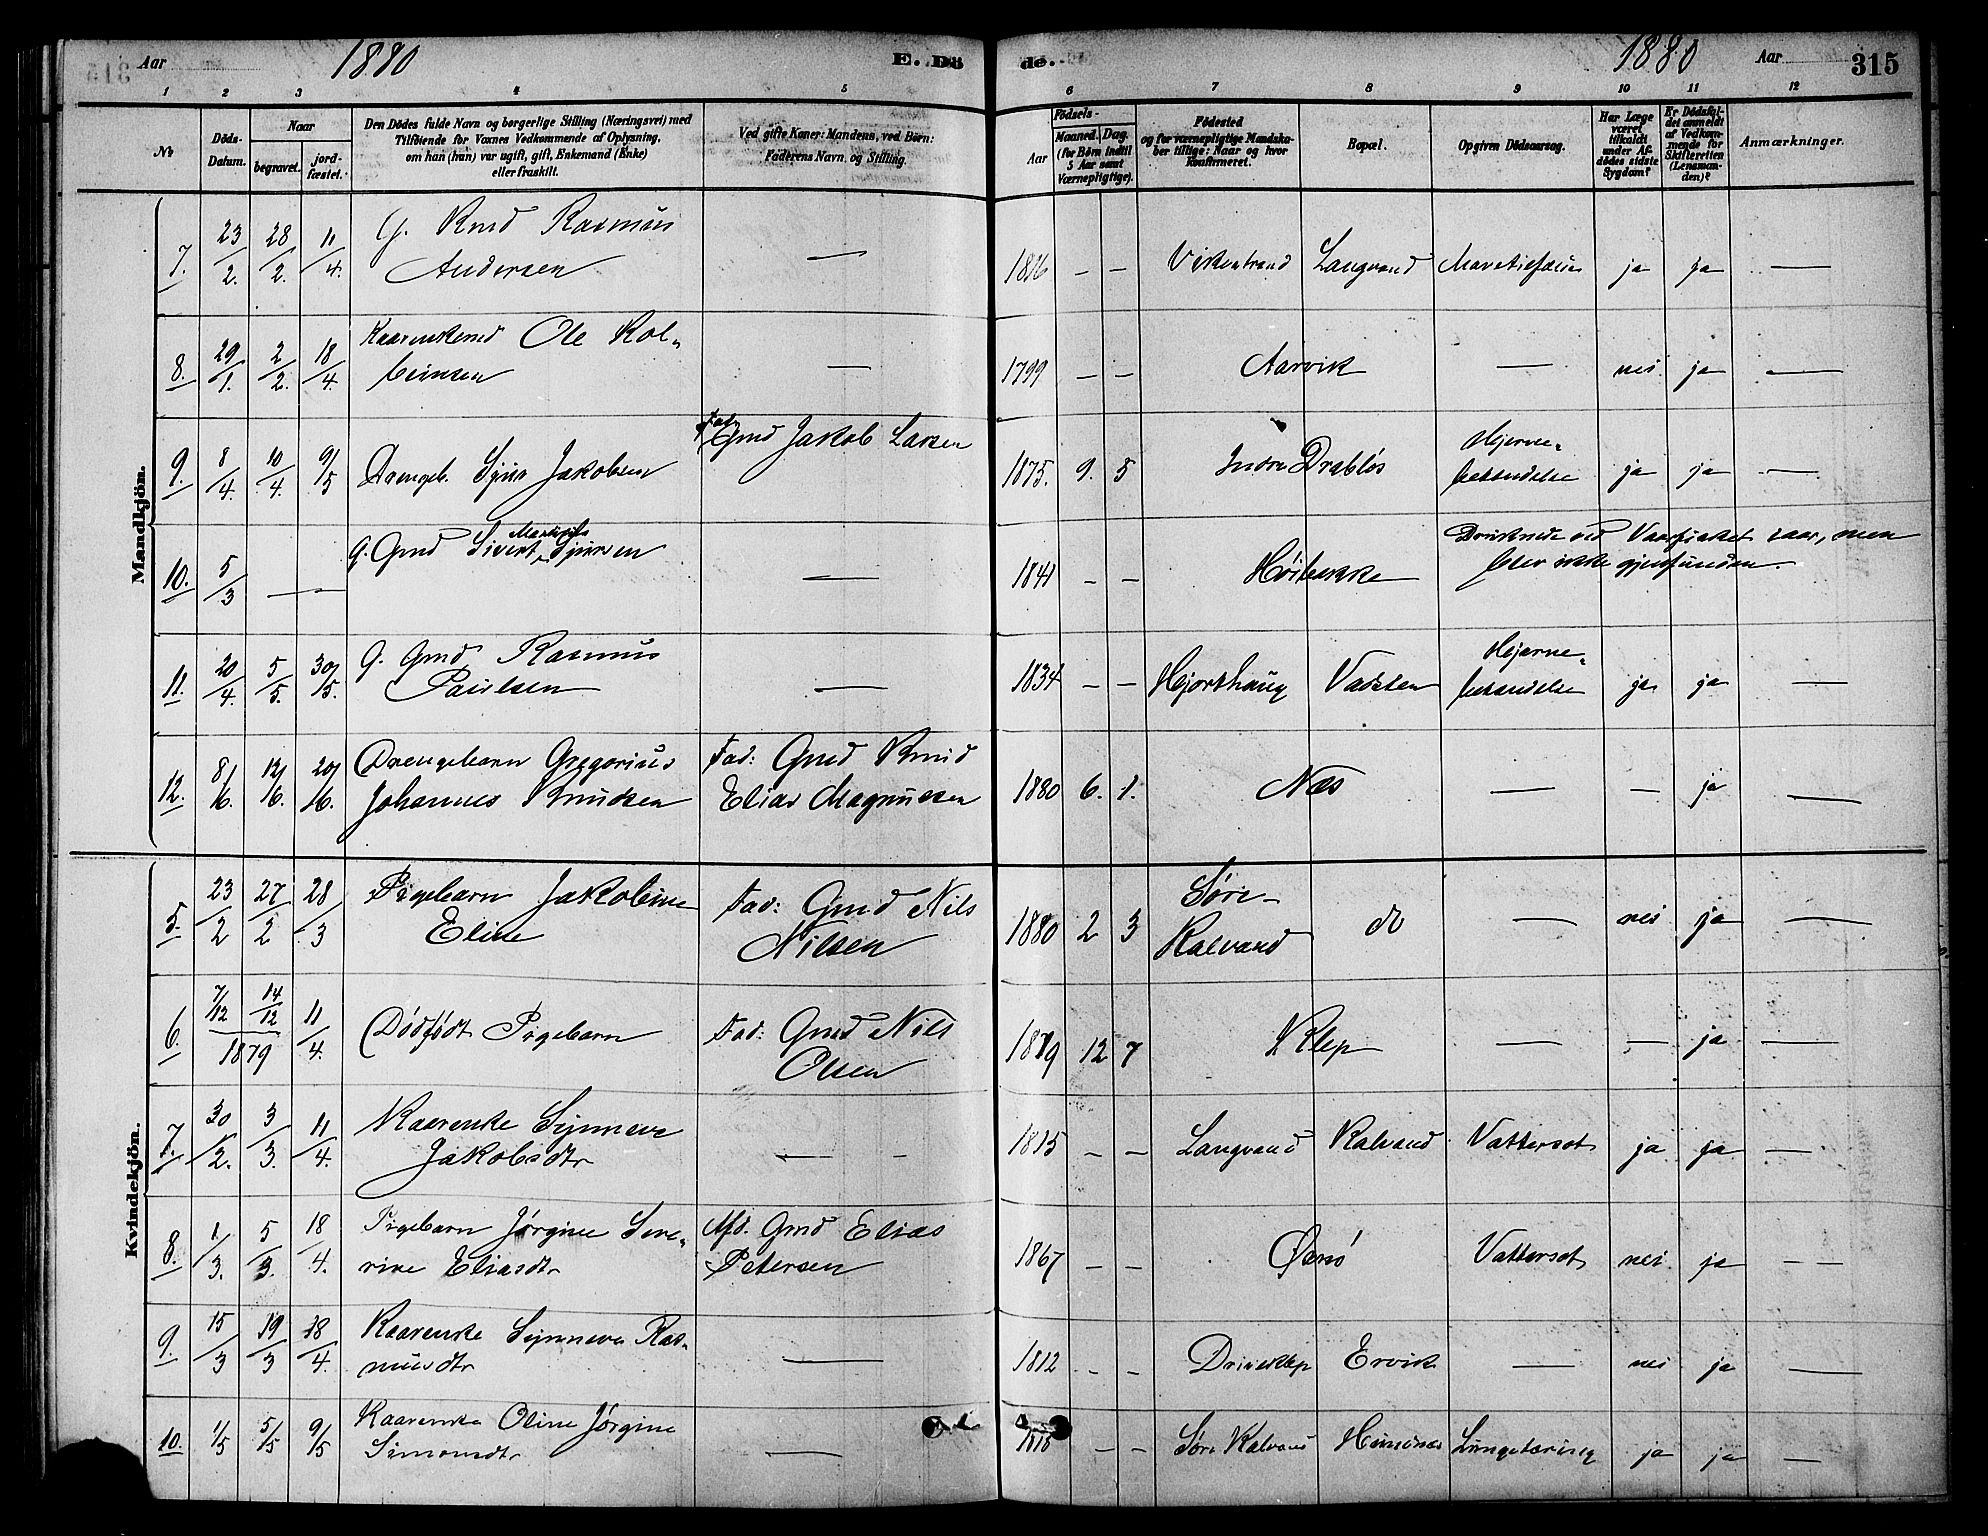 Aar 1880 E. Dö
de. 1880 Aar 315
1 2 3 4 5 6 7 8 9 10 11 12
No
Döds-Datum.
Naar
begravet.
jord-fæstet.
Den Dödes fulde Navn og borgerlige Stilling (Næringsvei) med
Tilföiende for Voxnes Vedkommende af Oplysning,
om han (hun) var ugift, gift, Enkemand (Enke)
eller fraskilt.
Ved gifte Koner: Mandens, ved Börn:
Faderens Navn og Stilling.
Aar
Födsels-
Maaned. Dag.
(for Börn indtil
5 Aar samt
Værnepligtige).
Födested
og for værnepligtige Mandska-
ber tillige: Naar og hvor
Konfirmeret.
Bopæl.
Opgiven Dödsaarsag.
Har Læge
været
tilkaldt
under Af-
dödes sidste
Sygdom?
Er Dödsfal-
det anmeldt
af Vedkom-
mende for
Skifteretten
(Lensman-
den)?
Anmærkninger.
Mandkjön.
7. 23/2. 28/2. 11/4. G. Kmd Rasmus
Andersen — 1816 – – Langvand ja ja —
8. 29/1. 2/2. 18/4. Kaarenkemd Ole Kol-
beinsen — 1799 – – Aarvik — nei ja —
9. 8/4. 10/4. 9/5 Drengeb. Sjur Jakobsen Fad: Gmd Jakob Larsen 1875. 9. 5 Indre Drabløs Hjerne-
betændelse ja ja —
10. 5/3 — G. Gmd Sivert Martinus Sjursen — 1841 – – Höibakke Druknede ved Vaarfisket iaar, men
blev ikke gjenfunden
11. 20/4. 5/5. 30/5. G. Gmd Rasmus
Paulsen — 1834 – – Hjorthaug Vadsten Hjerne-
betændelse ja ja —
12. 8/6. 12/6. 20/6. Drengebarn Gregorius
Johannes Knudsen Fad: Gmd Knud
Elias Magnussen 1880 6. 1. Næs — — ja —
Kvindekjön.
5. 23/2 27/2 28/3 Pigebarn Jakobine
Eline Fad: Gmd Nils
Nilsen 1880 2 3 Søre-
Kalvand do — nei ja —
6. 7/12 14/12 1879 11/4. Dødfødt Pigebarn Fad: Gmd Nils
Olsen 1879 12 7 Klep — — ja —
7. 30/2. 3/3. 11/4. Kaarenke Synneva
Jakobsdtr — 1815 – – Langvand Kalvand Vattersot ja ja —
8. 1/3. 5/3. 18/4. Pigebarn Jørgine Seve-
rine Eliasdtr Afd. Gmd Elias
Petersen 1867 – – Vattersot nei ja —
9. 15/3 19/3 18/4 Kaarenke Synneva Ras-
musdtr — 1812 – – Driveklep Ervik — nei ja —
10. 1/5 5/5 9/5 Kaarenke Oline Jørgine
Simonsdtr — 1818 – – Søre Kalvand Hundnæs Lungetæring ja ja —